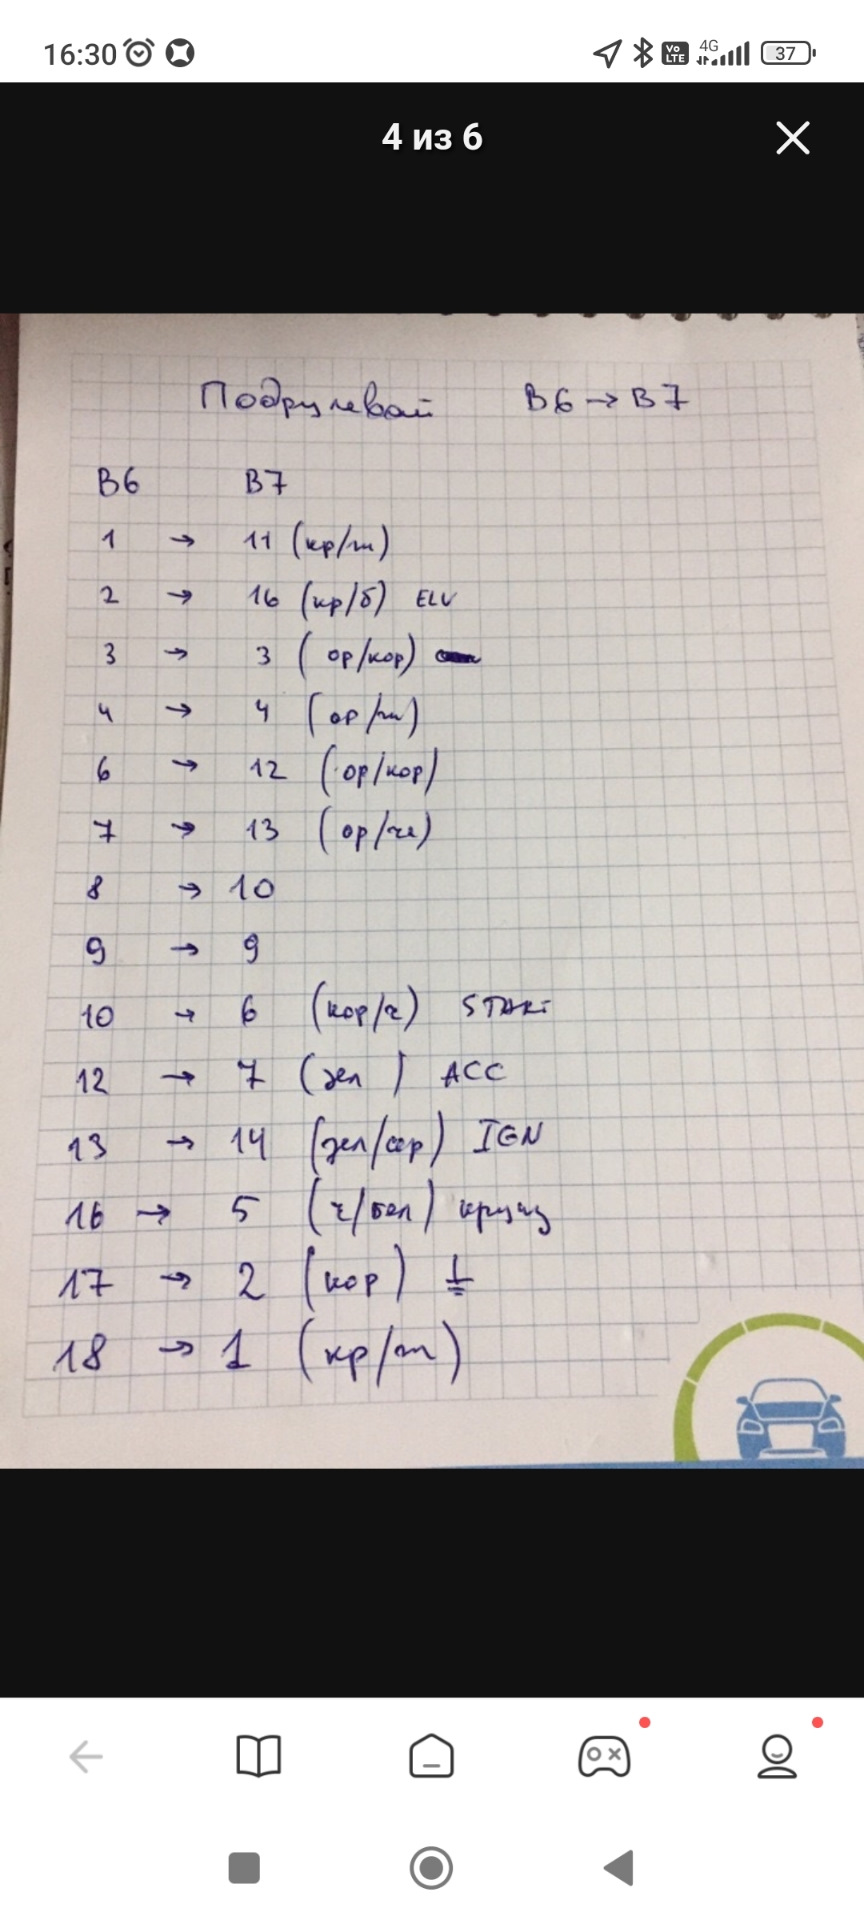 16:30 Vo LTE 4G 37
4 из 6
Подрулевой B6 → B7
B6 B7
1 → 11 (кр/ж)
2 → 16 (кр/б) ELV
3 → 3 (ор/кор)
4 → 4 (ор/ж)
6 → 12 (ор/кор)
7 → 13 (ор/че)
8 → 10
9 → 9
10 → 6 (кор/ч) START
12 → 7 (зел) ACC
13 → 14 (зел/сер) IGN
16 → 5 (ч/бел) круиз
17 → 2 (кор)
18 → 1 (кр/ж)